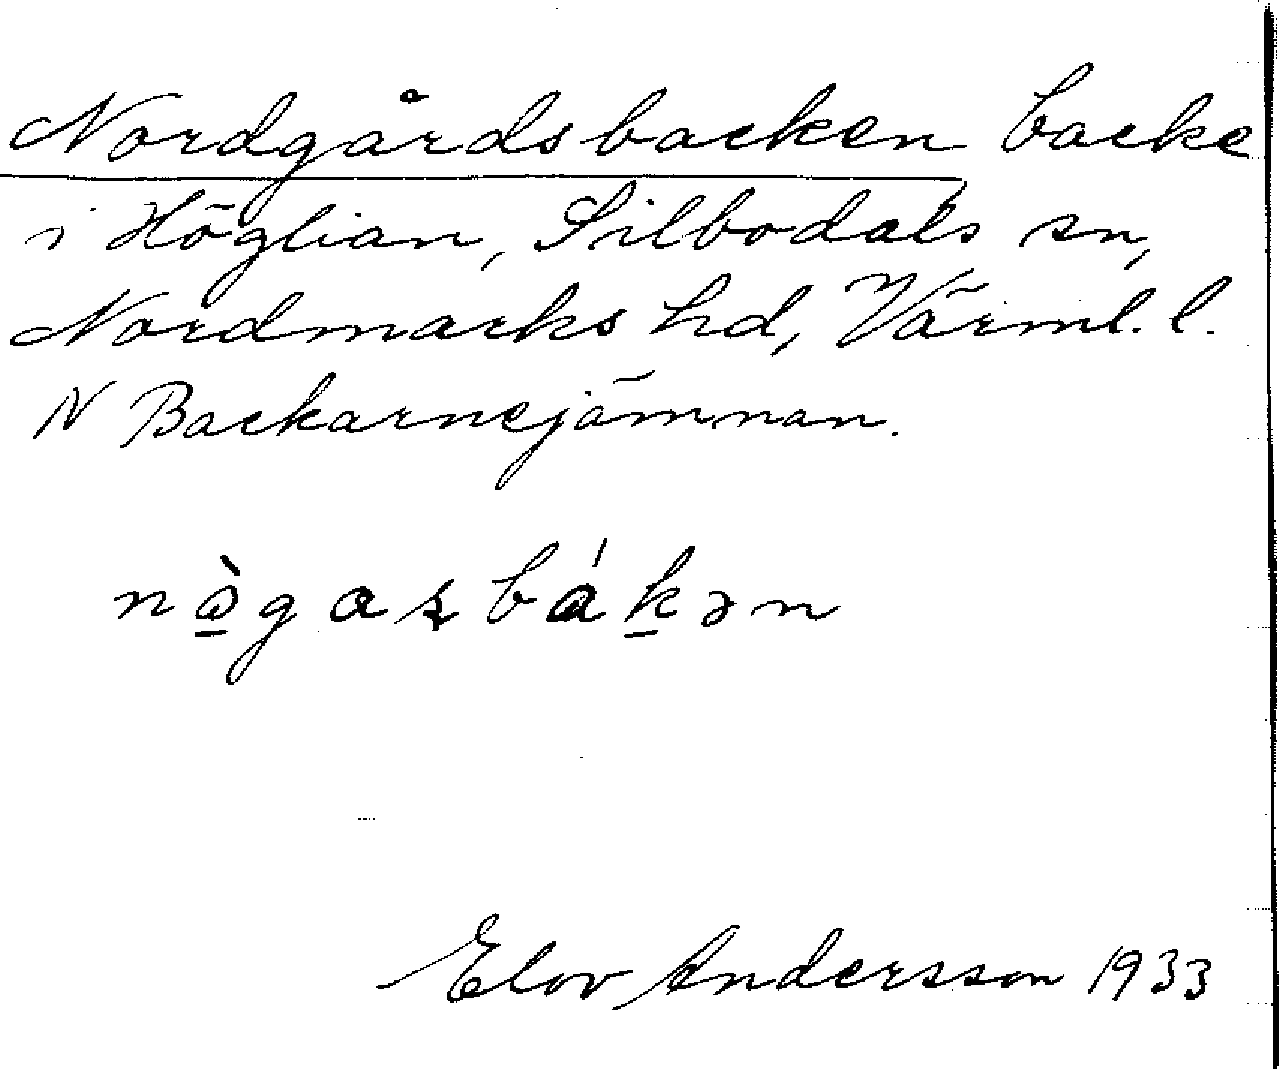 Nordgårdsbacken backe
i Höglian, Silbodals sn,
Nordmarks hd, Värml. l.
N Backarnejämnan.
nə̠̀gaʂbák̠ən
Elov Andersson 1933